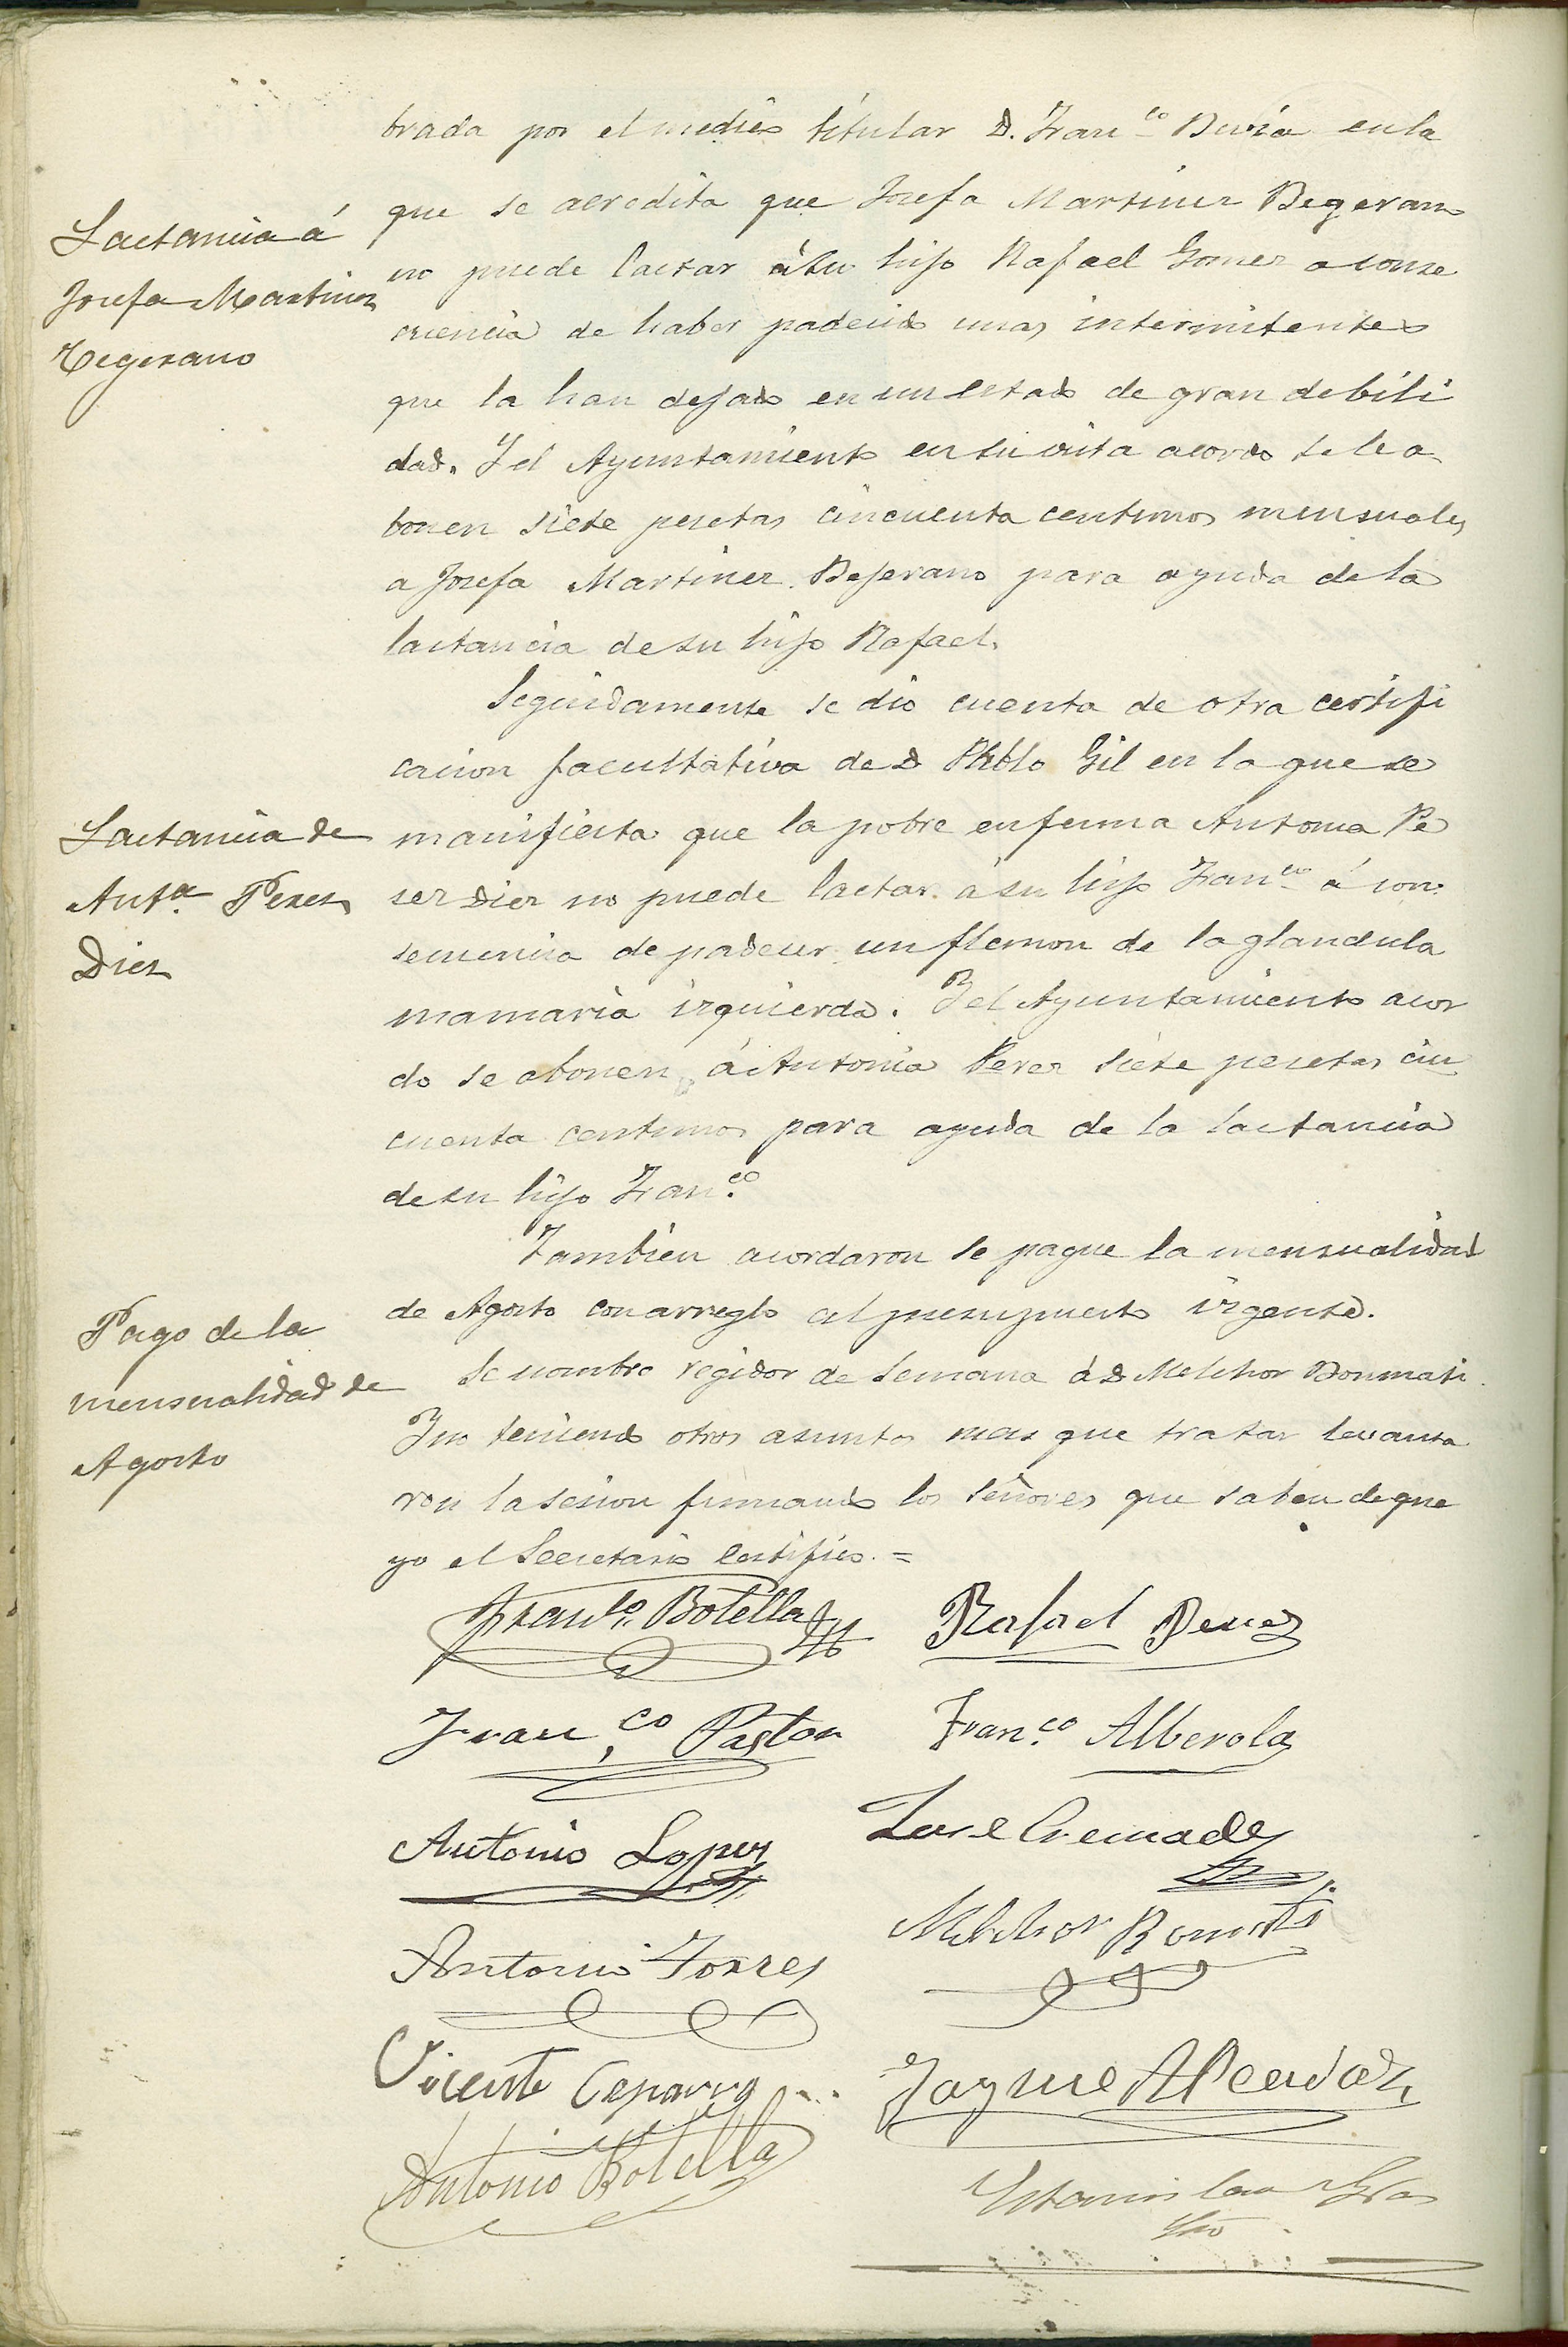 brada por el medico titular D. Fran.co Devia en la
Lactancia á
Josefa Martinez
Begerano
que se acredita que Josefa Martinez Begerano
no puede lactar á su hijo Rafael Gomez a conse
cuencia de haber padecido unas intermitentes
que la han dejado en un estado de gran debili
dad. Y el Ayuntamiento en su vista acordo se le a
bonen siete pesetas cincuenta centimos mensuales
a Josefa Martinez Bejerano para ayuda de la
lactancia de su hijo Rafael.
Seguidamente se dio cuenta de otra certifi
cacion facultativa de D Pablo Gil en la que se
Lactancia de
Ant.a Perez
Diez
manifiesta que la pobre enferma Antonia Pe
rez Diez no puede lactar á su hijo Fran.co á con
secuencia de padecer un flemon de la glandula
mamaria izquierda. Y el Ayuntamiento acor
do se abonen á Antonia Perez siete pesetas cin
cuenta centimos para ayuda de la lactancia
de su hijo Fran.co
Tambien acordaron se pague la mensualidad
Pago de la
mensualidad de
Agosto
de Agosto con arreglo al presupuesto vigente.
Se nombro regidor de semana á D Melchor Bonmati.
Y no teniendo otros asuntos mas que tratar levanta
ron la sesion firmando los señores que saben de que
yo el Secretario certifico. =
Fran.co Botella
Rafael Perez
Fran.co Pastor
Fran.co Alberola
Antonio Lopez
José Cremades
Antonio Torres
Melchor Bonmati
Vicente
Jayme
Antonio Botella
Estanislao
Srio